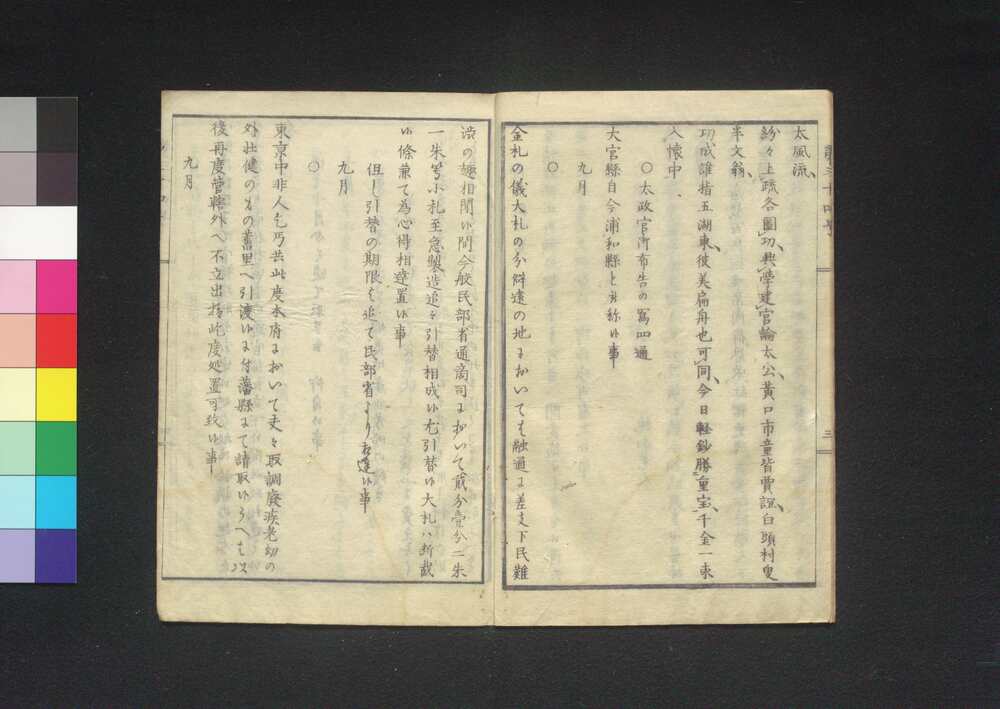 太風流、
紛々上疏各圖功、興學建官論太公、黄口市童皆賈誼、白頭村叟
半文翁、
功成誰指五湖東、彼美扁舟也可同、今日軽鈔勝重宝、千金一束
入懐中、
○太政官御布告の寫四通
大宮縣自今浦和縣と可称候事
九月
○
金札の儀大札のミ辟遠の地においても融通に差支下民難
渋の趣相聞候間今般民部省通商司において貳分壹分二朱
一朱等小札至急製造追々引替相成候尤引替候大札ハ断裁
候條兼て為心得相達置候事
但し引替の期限は追て民部省より相達候事
九月
○
東京中非人乞丐共此度本府において夫々取調廃疾老幼の
外壮健のもの舊里へ引渡候に付藩縣にて請取候うへは以
後再度管轄外へ不立出様此度処置可致候事
九月